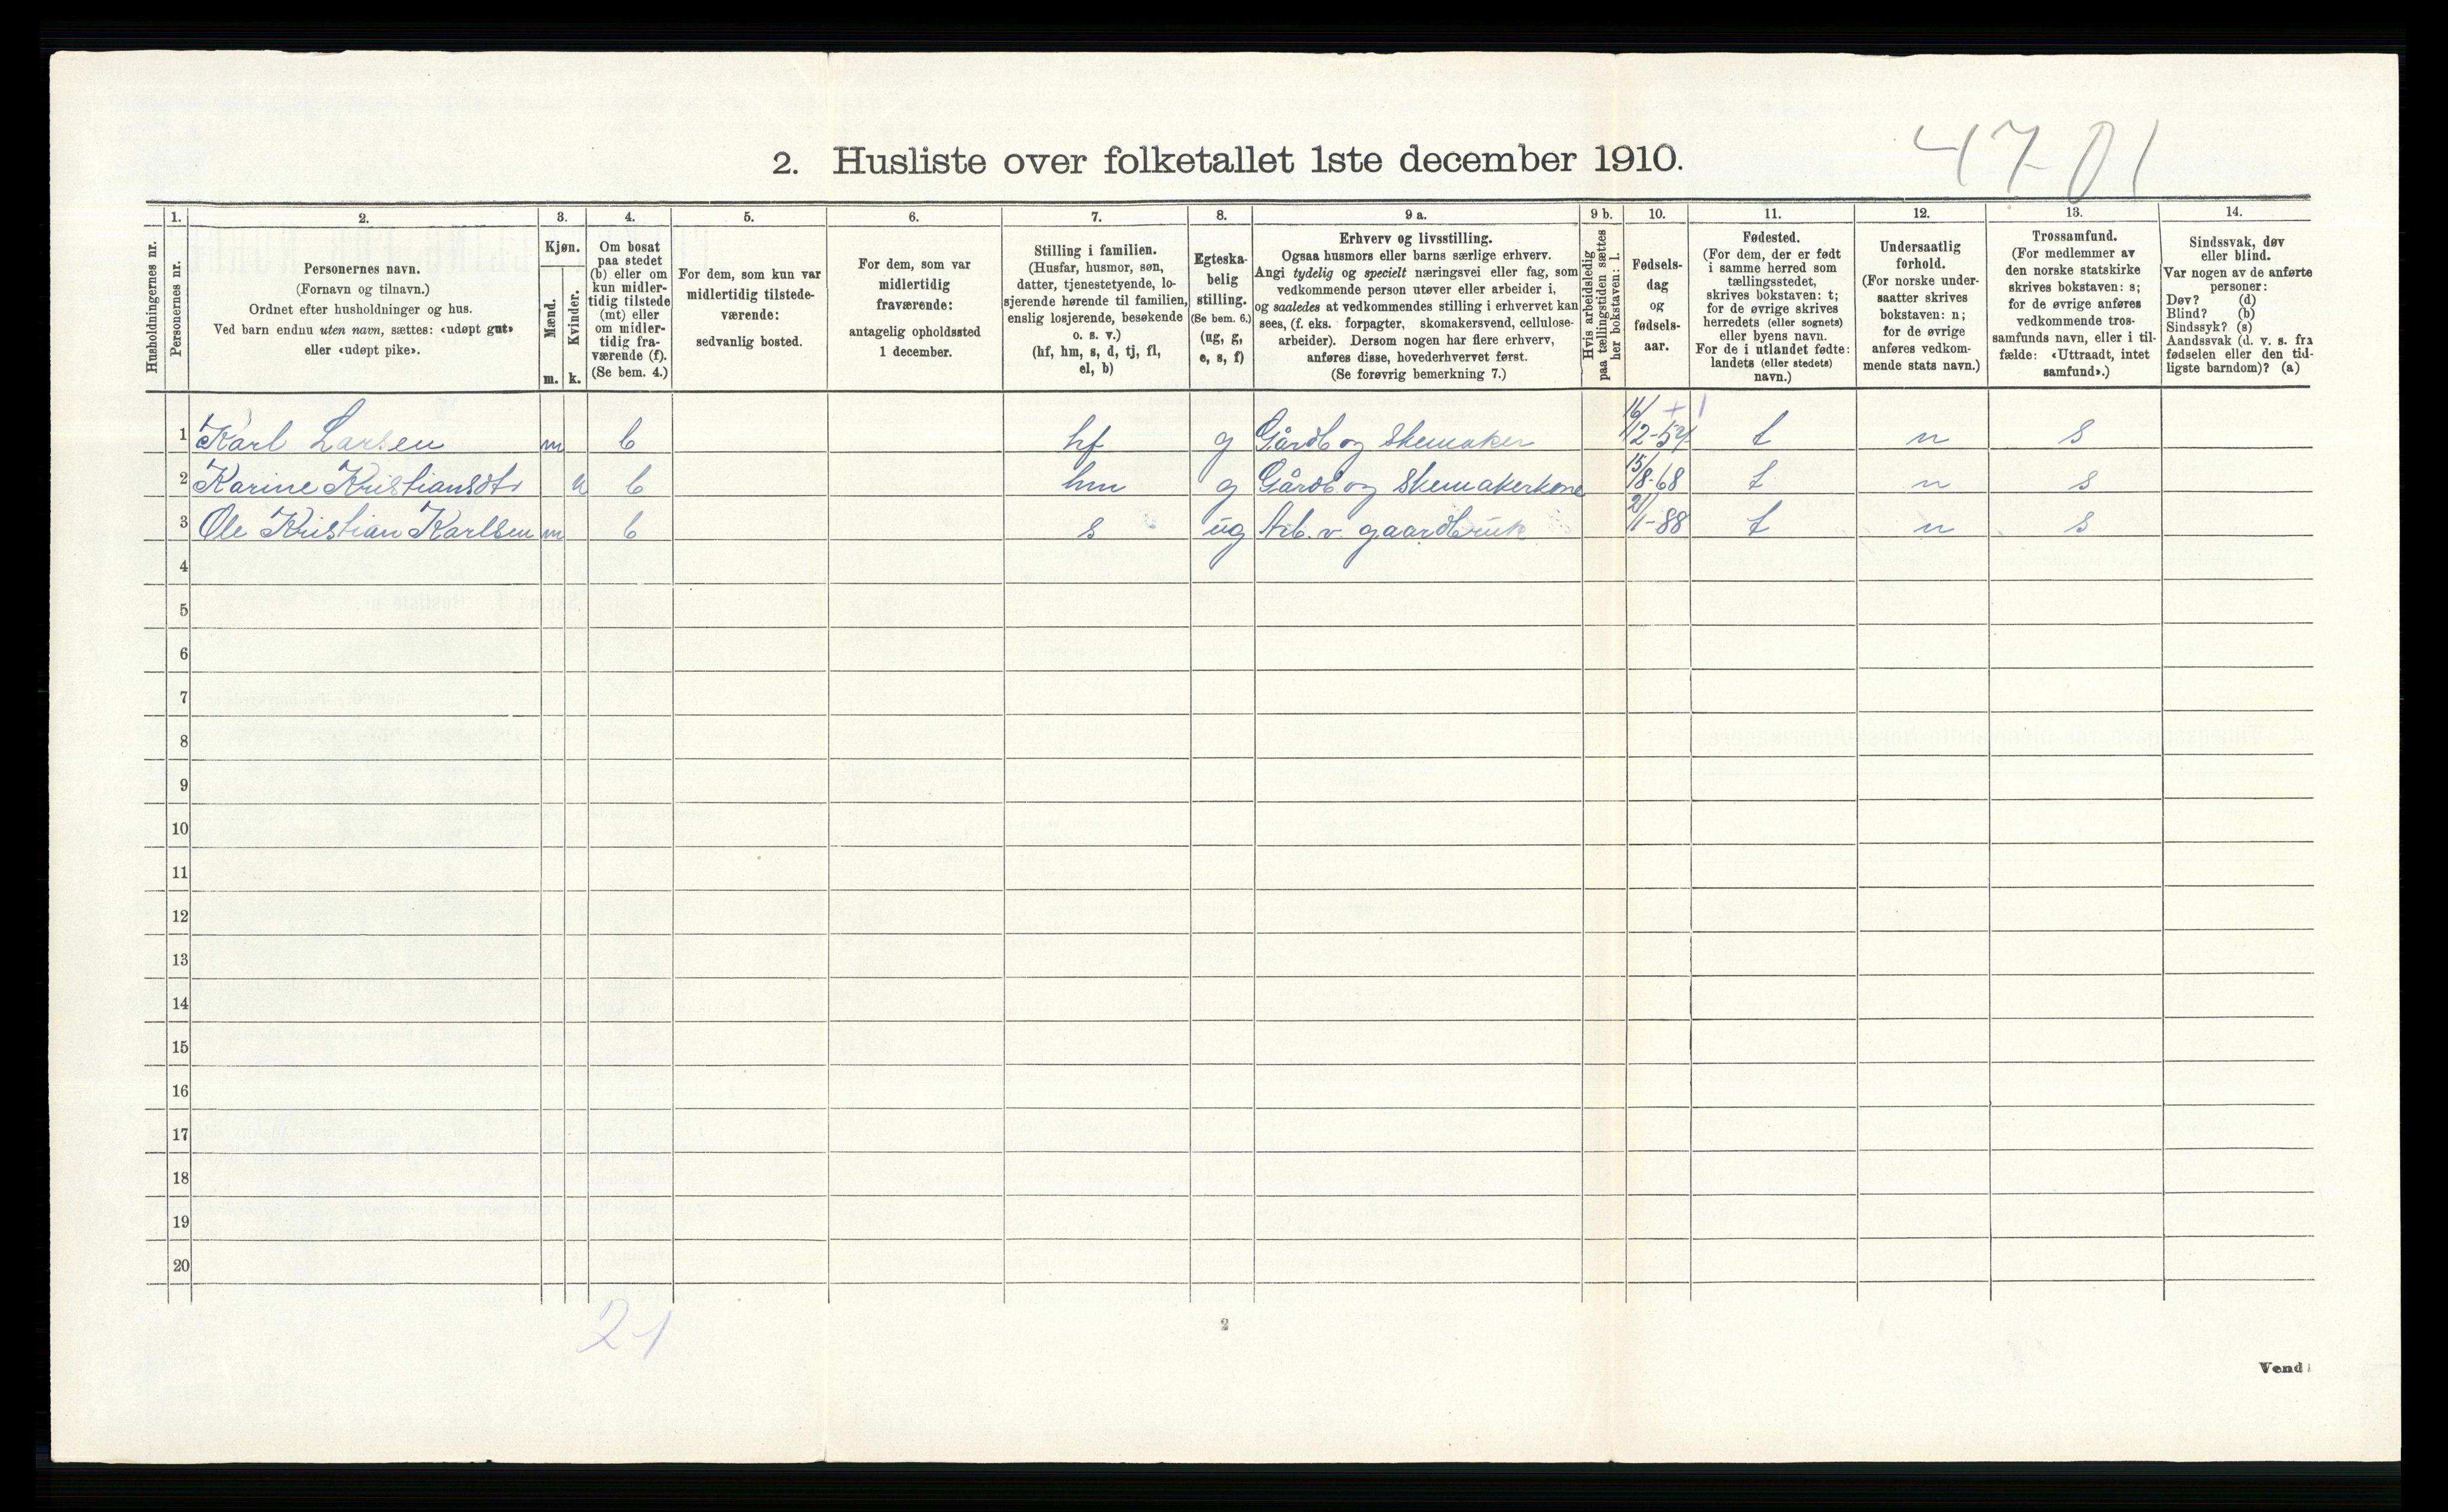 4701
2. Husliste over folketallet 1ste december 1910.
Husholdningernes nr.
1.
Personernes nr.
2.
Personernes navn.
(Fornavn og tilnavn.)
Ordnet efter husholdninger og hus.
Ved barn endnu uten navn, sættes: «udøpt gut»
eller «udøpt pike».
3.
Kjøn.
Mænd.
Kvinder.
m. k.
4.
Om bosat
paa stedet
(b) eller om
kun midler-
tidig tilstede
(mt) eller
om midler-
tidig fra-
værende (f).
(Se bem. 4.)
5.
For dem, som kun var
midlertidig tilstede-
værende:
sedvanlig bosted.
6.
For dem, som var
midlertidig
fraværende:
antagelig opholdssted
1 december.
7.
Stilling i familien.
(Husfar, husmor, søn,
datter, tjenestetyende, lo-
sjerende hørende til familien,
enslig losjerende, besøkende
o. s. v.)
(hf, hm, s, d, tj, fl,
el, b)
8.
Egteska-
belig
stilling.
(Se bem. 6.)
(ug, g,
e, s, f)
9 a.
Erhverv og livsstilling.
Ogsaa husmors eller barns særlige erhverv.
Angi tydelig og specielt næringsvei eller fag, som
vedkommende person utøver eller arbeider i,
og saaledes at vedkommendes stilling i erhvervet kan
sees, (f. eks. forpagter, skomakersvend, cellulose-
arbeider). Dersom nogen har flere erhverv,
anføres disse, hovederhvervet først.
(Se forøvrig bemerkning 7.)
9 b.
Hvis arbeidsledig
paa tællingstiden sættes
her bokstaven: l.
10.
Fødsels-
dag
og
fødsels-
aar.
11.
Fødested.
(For dem, der er født
i samme herred som
tællingsstedet,
skrives bokstaven: t;
for de øvrige skrives
herredets (eller sognets)
eller byens navn.
For de i utlandet fødte:
landets (eller stedets)
navn.)
12.
Undersaatlig
forhold.
(For norske under-
saatter skrives
bokstaven: n;
for de øvrige
anføres vedkom-
mende stats navn.)
13.
Trossamfund.
(For medlemmer av
den norske statskirke
skrives bokstaven: s;
for de øvrige anføres
vedkommende tros-
samfunds navn, eller i til-
fælde: «Uttraadt, intet
samfund».)
14.
Sindssvak, døv
eller blind.
Var nogen av de anførte
personer:
Døv? (d)
Blind? (b)
Sindssyk? (s)
Aandssvak (d. v. s. fra
fødselen eller den tid-
ligste barndom)? (a)
1 Karl Larsen m b hf g Gårdb og Skemaker 16/12-54 t n s
2 Karine Kristiansdtr k b hm g Gårdb og Skemakerkone 15/8-68 t n s
3 Ole Kristian Karlsen m b s ug Arb. v. gaardbruk 21/1-88 t n s
4
5
6
7
8
9
10
11
12
13
14
15
16
17
18
19
20
21
2
Vend